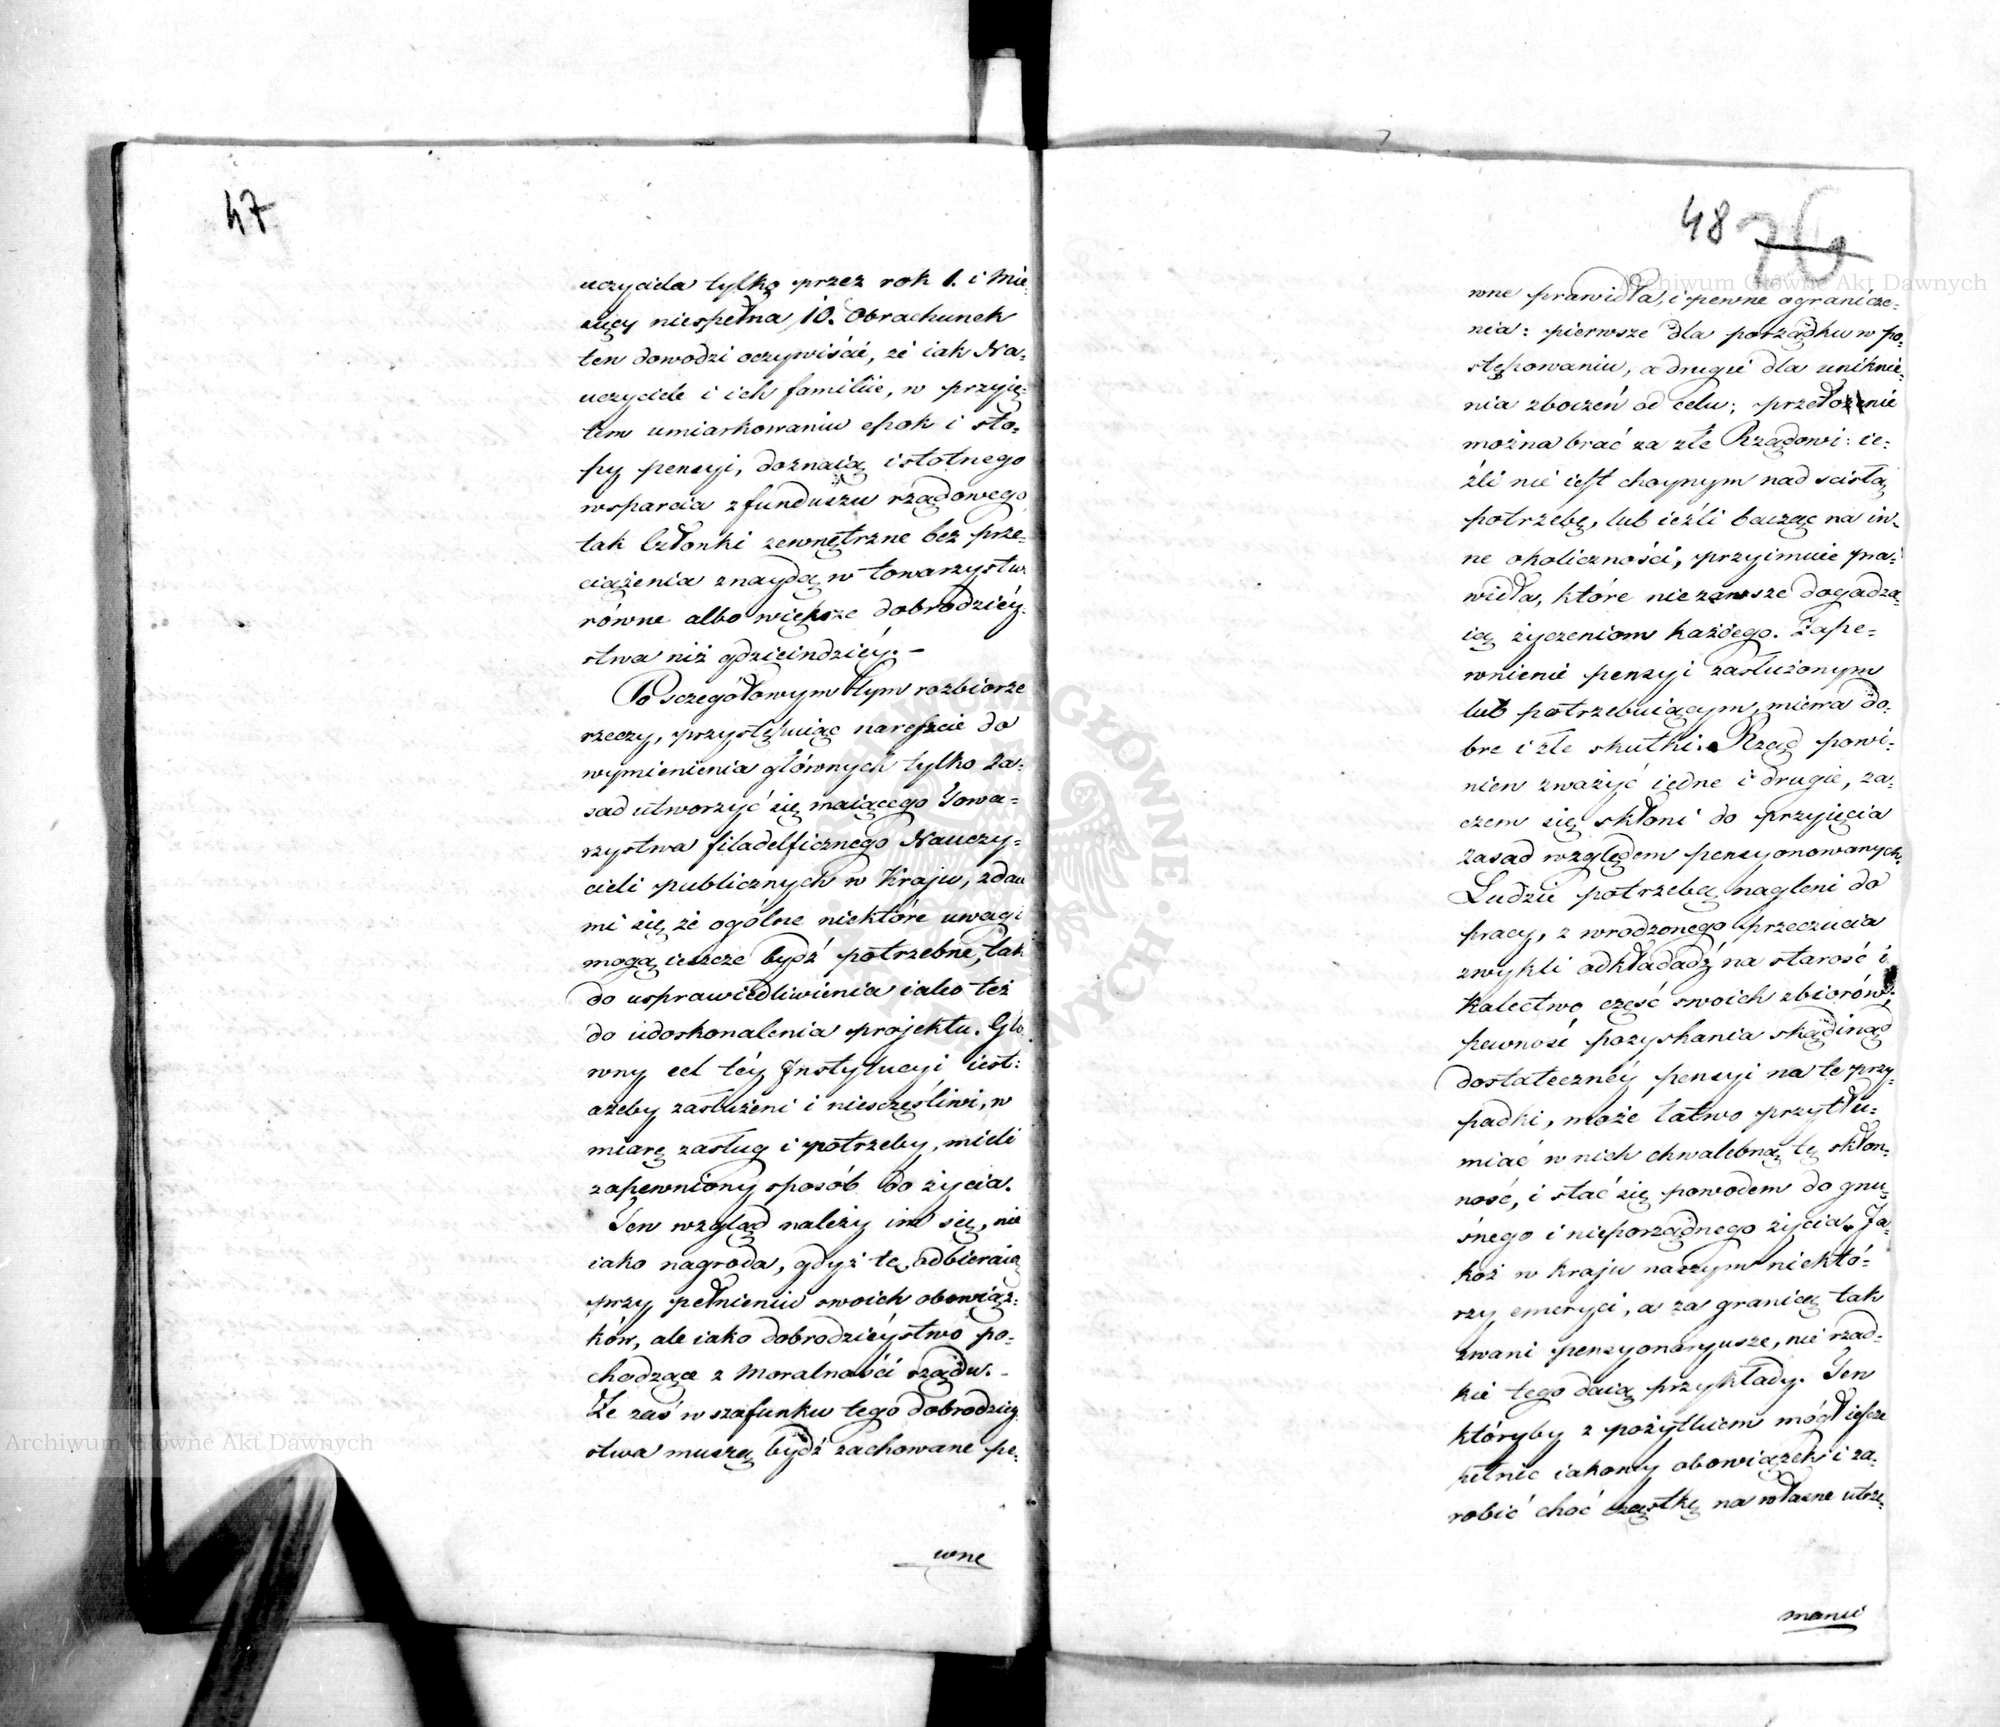 47
uczyciela tylko przez rok 1. i Mie-
sięcy niespełna 10. Obrachunek
ten dowodzi oczywiście, że iak Na-
uczyciele i ich familiie, w przyię-
tem umiarkowaniu epok i sto-
py pensyi, doznaią istotnego
wsparcia z funduszu rządowego,
tak Członki zewnętrzne bez prze-
ciążenia znaydą w towarzystw.
równe albo większe dobrodziéy-
stwa niż gdzieindziéy. –
Po sczegółowym tym rozbiorze
rzeczy, przystępuiąc nareszcie do
wymienienia głównych tylko za-
sad utworzyć się maiącego Towa-
rzystwa filadelficznego Nauczy-
cieli publicznych w Kraju, zdaie
mi się że ogólne niektóre uwagi
mogą ieszcze bydź potrzebne, tak
do usprawiedliwienia iako też
do udoskonalenia projektu. Głó-
wny cel téy Instytucyi iest:
ażeby zasłużeni i niesczęśliwi, w
miarę zasług i potrzeby, mieli
zapewniony sposób do życia.
Ten wzgląd należy im się, nie
iako nagroda, gdyż tę odbieraią
przy pełnieniu swoich obowiąz-
ków, ale iako dobrodzieystwo po-
chodzące z Moralności rządu. -
Że zaś w szafunku tego dobrodziey-
stwa muszą bydź zachowane pe-
wne
48 76
wne prawidła, i pewne ogranicze-
nia: pierwsze dla porządku w po-
stępowaniu, a drugie dla uniknie-
nia zboczeń od celu; przeto nie
można brać za złe Rządowi: ie-
źli nie iest choynym nad scisłą
potrzebę, lub ieźli bacząc na in-
ne okoliczności, przyimuie pra-
widła, które nie zawsze dogadza-
ią życzeniom każdego. Zape-
wnienie pensyi zasłużonym
lub potrzebuiącym, miewa do-
bre i złe skutki. Rząd powi-
nien zważyć iedne i drugie, za-
czem się skłoni do przyięcia
zasad względem pensyonowanych.
Ludzie potrzebą nagleni do
pracy, z wrodzonego przeczucia
zwykli odkładadź na starość i
kalectwo część swoich zbiorów;
pewność pozyskania skądinąd
dostatecznéy pensyi na te przy-
padki, może łatwo przytłu-
miać w nich chwalebną tę skłon-
ność, i stać się powodem do gnu-
śnego i nieporządnego życia. Ja-
koż w kraju naszym niektó-
rzy emeryci, a za granicą tak
zwani pensyonaryusze, nie rzad-
kie tego daią przykłady. Ten
któryby z pożytkiem mógł ieszcze
pełnic iakowy obowiązek i za-
robić choć cząstkę na własne utrzy-
manie
Archiwum Główne Akt Dawnych
Archiwum Główne Akt Dawnych